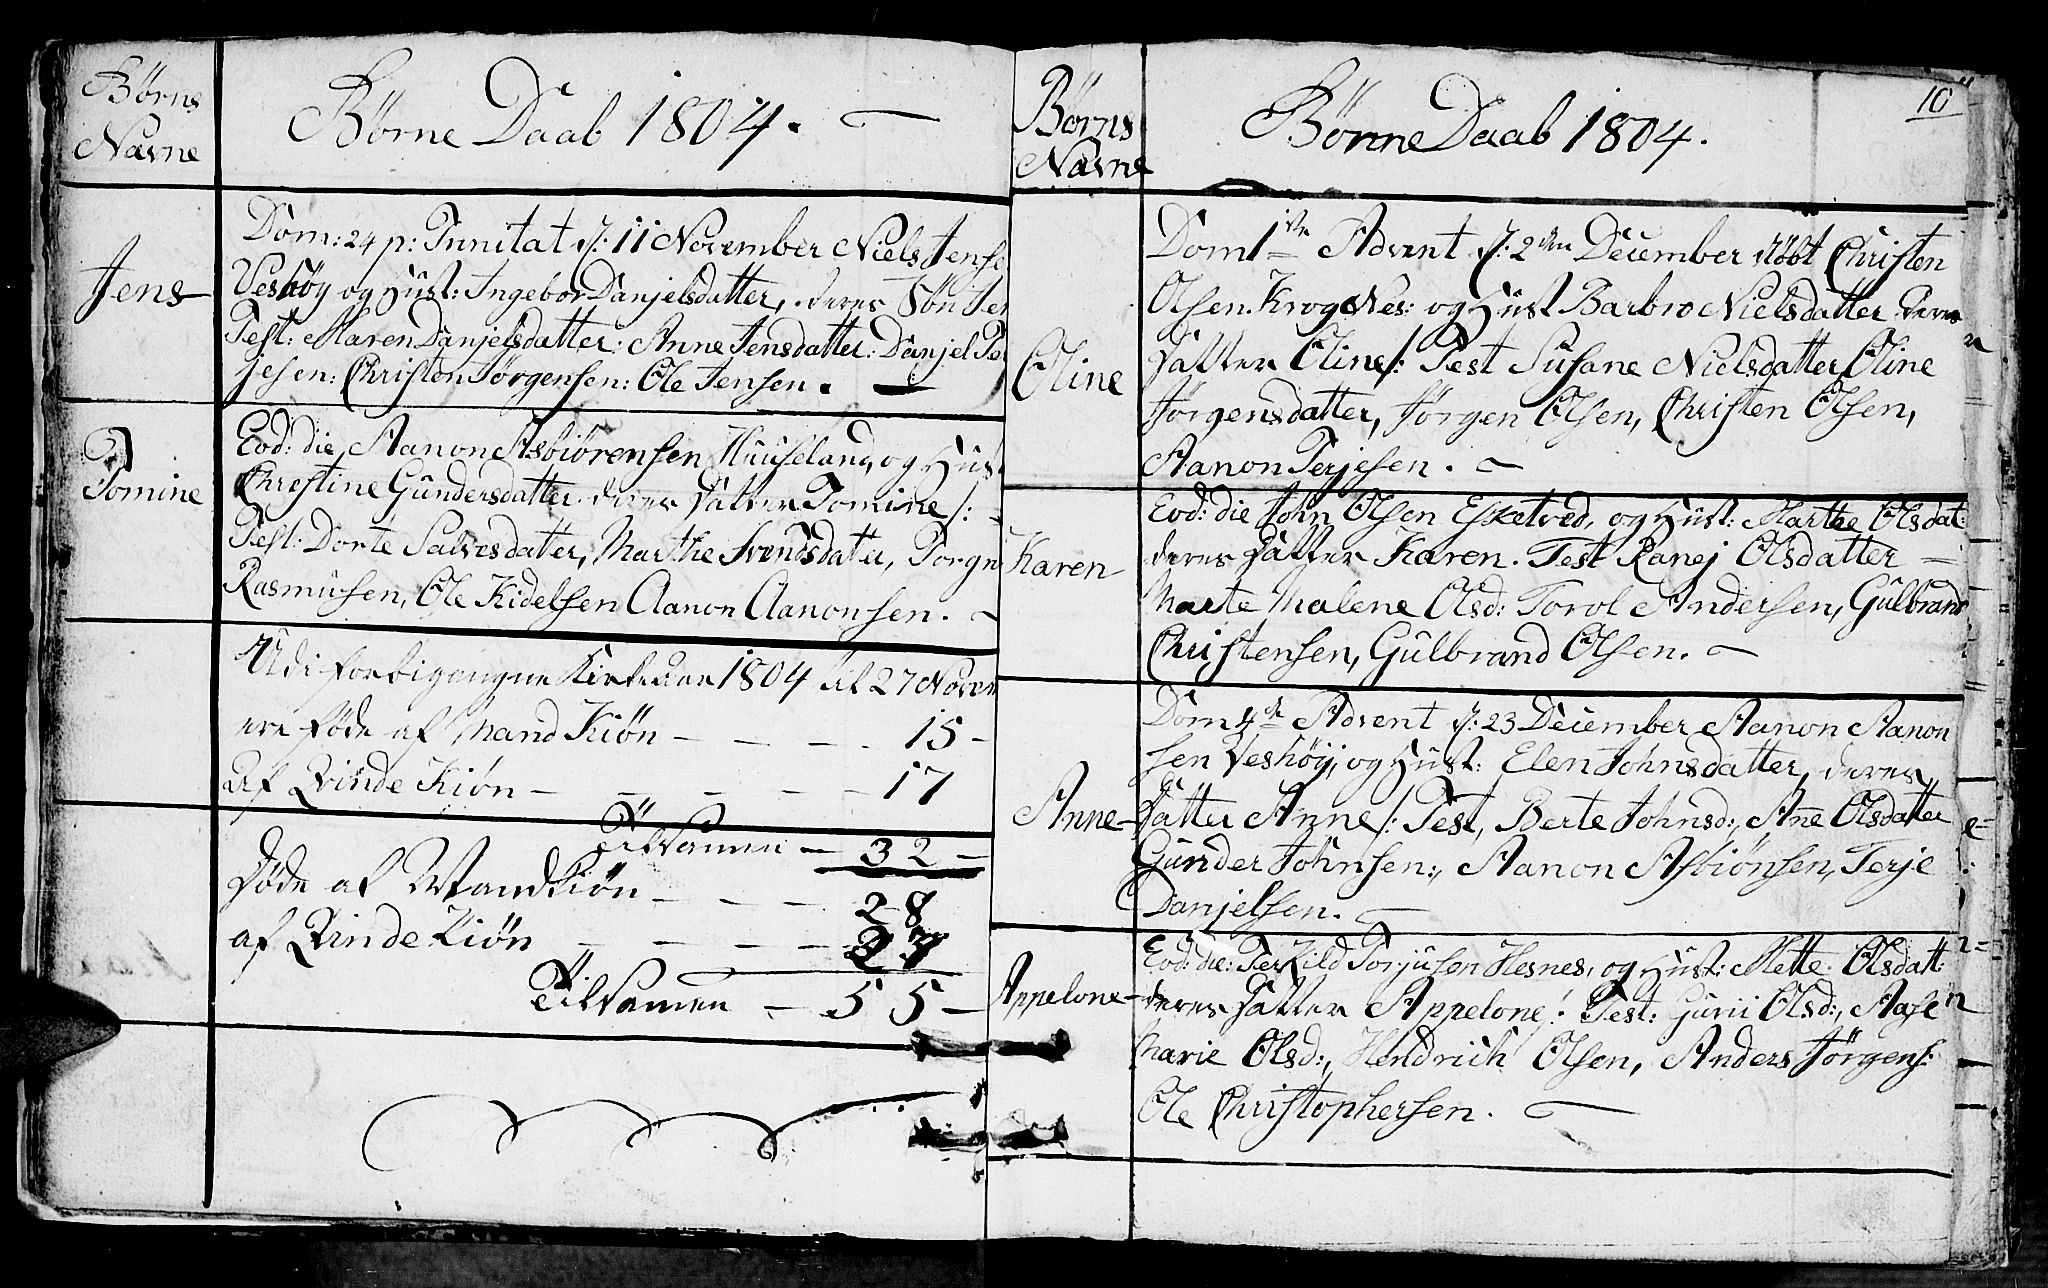 Børns
Navne
Børne Daab 1804.
Jens
Dom: 24 p: Trinitat d: 11 November Niels Jense
Veshöy og Hust: Ingebor Danjelsdatter, deres Søn Jen
Test: Maren Danjelsdatter: Anne Jensdatter: Danjel Te
jesen: Christen Jørgensen: Ole Jensen.
Tomine
Eod: die, Aanon Asbiörensen Huuseland, og Hust
Christine Gundersdatter deres Datter Tomine/:
Test: Dorte Salvesdater, Marthe Svendsdater, Torgn
Rasmusen, Ole Kidelsen Aanon Aanonsen.
Udi forbigangne Kirkeaar 1804 til 27 Novem
ere føde af Mand Kiön - - - - 15 -
Af Qvinde Kiön - - - - - 17
Tilsamen - 32 -
Døde af Mandkiön - - - 28
af Qvinde Kiön - - - - 27
Tilsamen - 55 -
Børns
Navne
Børne Daab 1804.
10
Oline
Dom 1ste Advent d: 2den December døbt Christen
Olsen Krogenes: og Hust Barbro Nielsdatter deres
Datter Oline/: Test Susane Nielsdatter, Oline
Jørgensdatter, Jørgen Olsen, Christen Olsen,
Aanon Terjesen.
Karen
Eod: die John Olsen Esketved, og Hust: Marthe Olsdat:
deres Datter Karen. Test Ranej Olsdatter
Marte Malene Olsd: Torol Andersen, Gulbrand
Christensen, Gulbrand Olsen.
Anne
Dom 4de Advent d: 23 December Aanon Aanon
sen Veshöy, og Hust: Elen Johnsdatter, deres
Datter Anne/: Test, Berte Johnsd:, Ane Olsdatter
Gunder Johnsen:, Aanon Asbiönsen, Terje
Danjelsen.
Appelone
Eod: die: Terkild Torjusen Hesnes, og Hust: Mette Olsdatt:
deres Datter Appelone: Test: Gurii Olsd:, Aase
Marie Olsd:, Hendrich Olsen, Anders Jørgens:
Ole Christophersen.